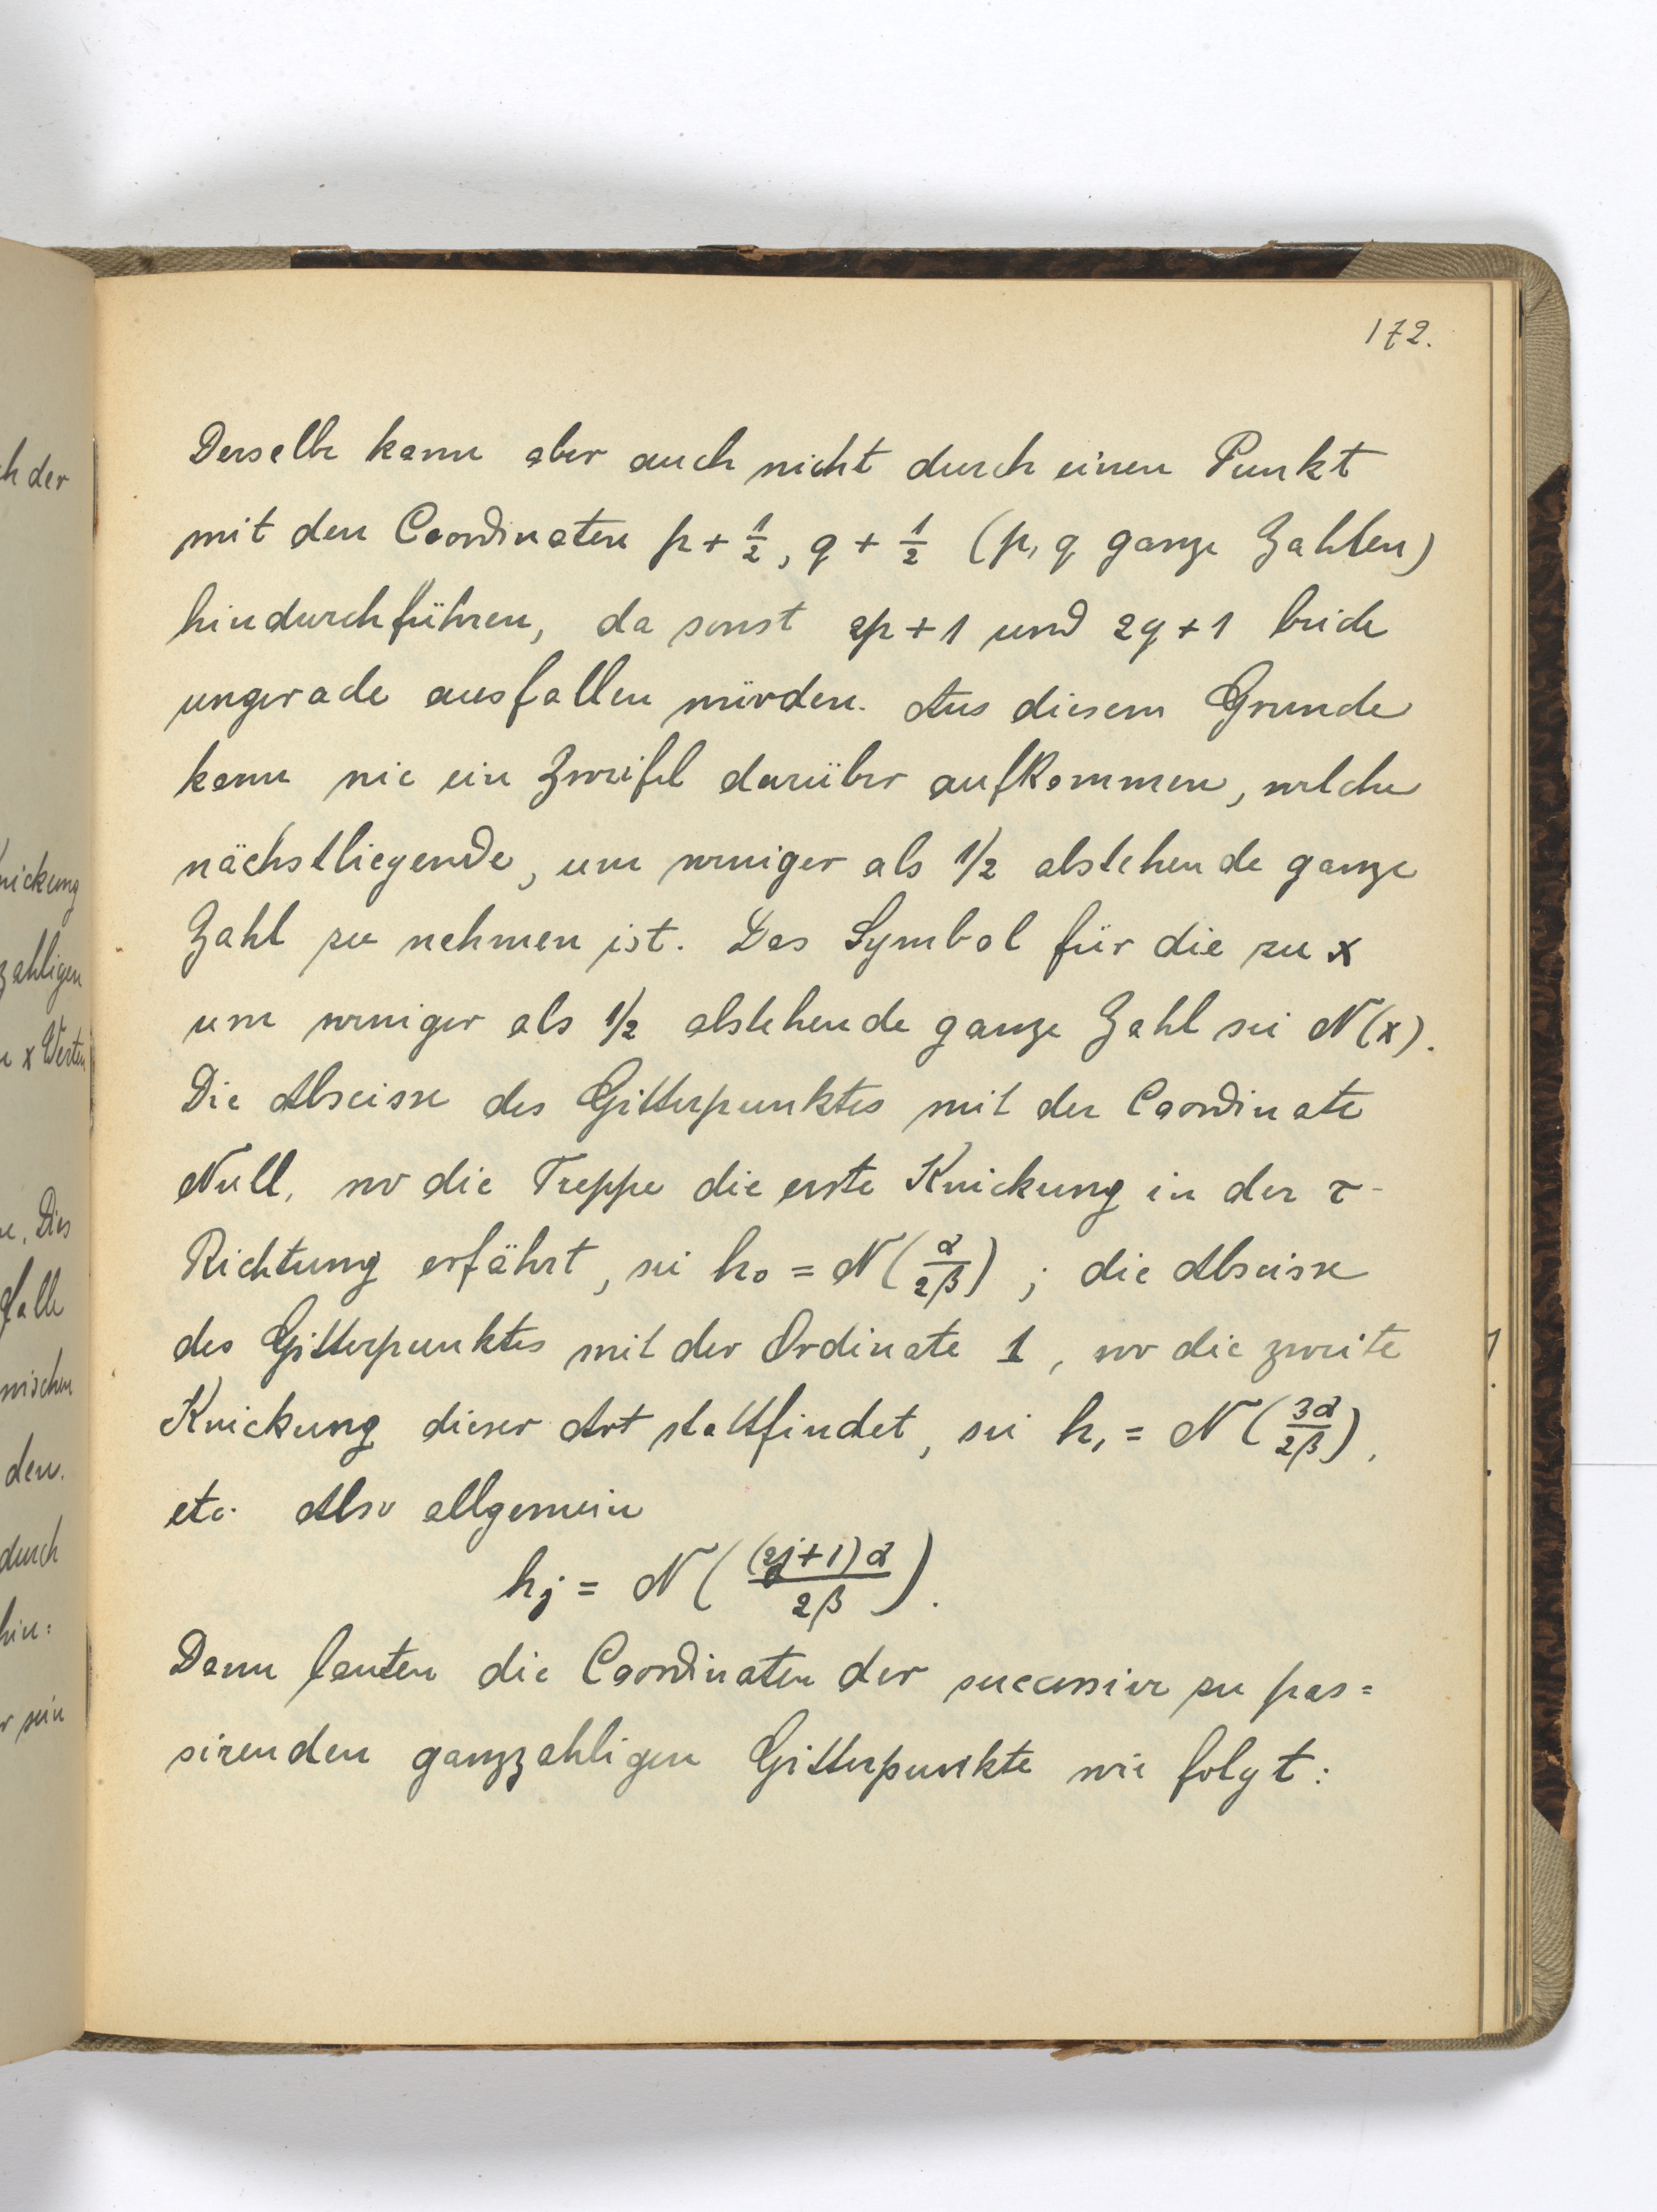 172.
Derselbe kann aber auch nicht durch einen Punkt
mit den Coordinaten p + 1/2, q + 1/2 (p, q ganze Zahlen)
hindurchführen, da sonst 2p+1 und 2q+1 beide
ungerade ausfallen würden. Aus diesem Grunde
kann nie ein Zweifel darüber aufkommen, welche
nächstliegende, um weniger als 1/2 abstehende ganze
Zahl zu nehmen ist. Das Symbol für die zu x
um weniger als 1/2 abstehende ganze Zahl sei N(x).
Die Abscisse des Gitterpunktes mit der Coordinate
Null, wo die Treppe die erste Knickung in der τ-
Richtung erfährt, sei h₀ = N(α/2β) ; die Abscisse
des Gitterpunktes mit der Ordinate 1, wo die zweite
Knickung dieser Art stattfindet, sei h₁ = N(3α/2β),
etc. Also allgemein
hⱼ = N((2j+1)α/2β).
Dann lauten die Coordinaten der successive zu pas=
sirenden ganzzahligen Gitterpunkte wie folgt:
h der
nickung
zahligen
x Werten
Dies
falle
wischen
den.
durch
hin:
r sein